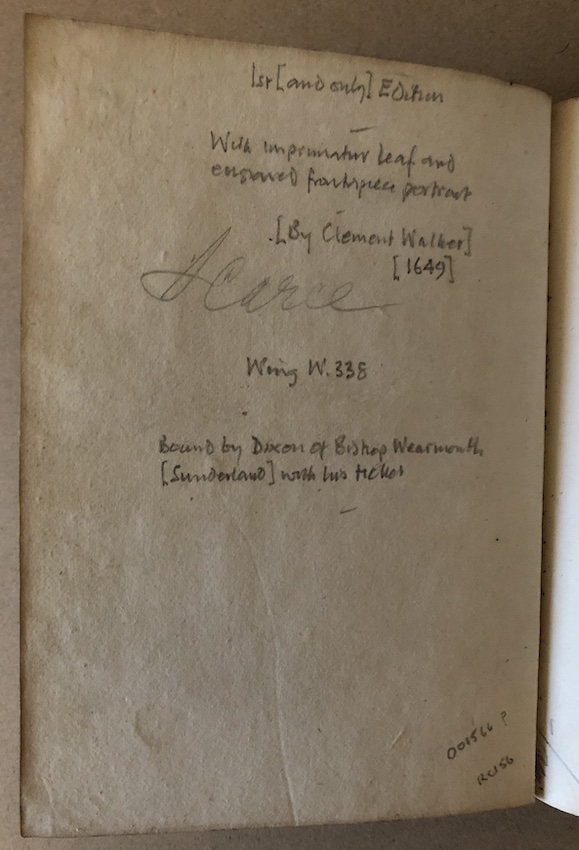 1st [and only] Edition
With imprimatur leaf and
engraved frontispiece portrait
[By Clement Walker]
[1649]
Scarce
Wing W.338
Bound by Dixon of Bishop Wearmouth
[Sunderland] with his ticket
001566 P